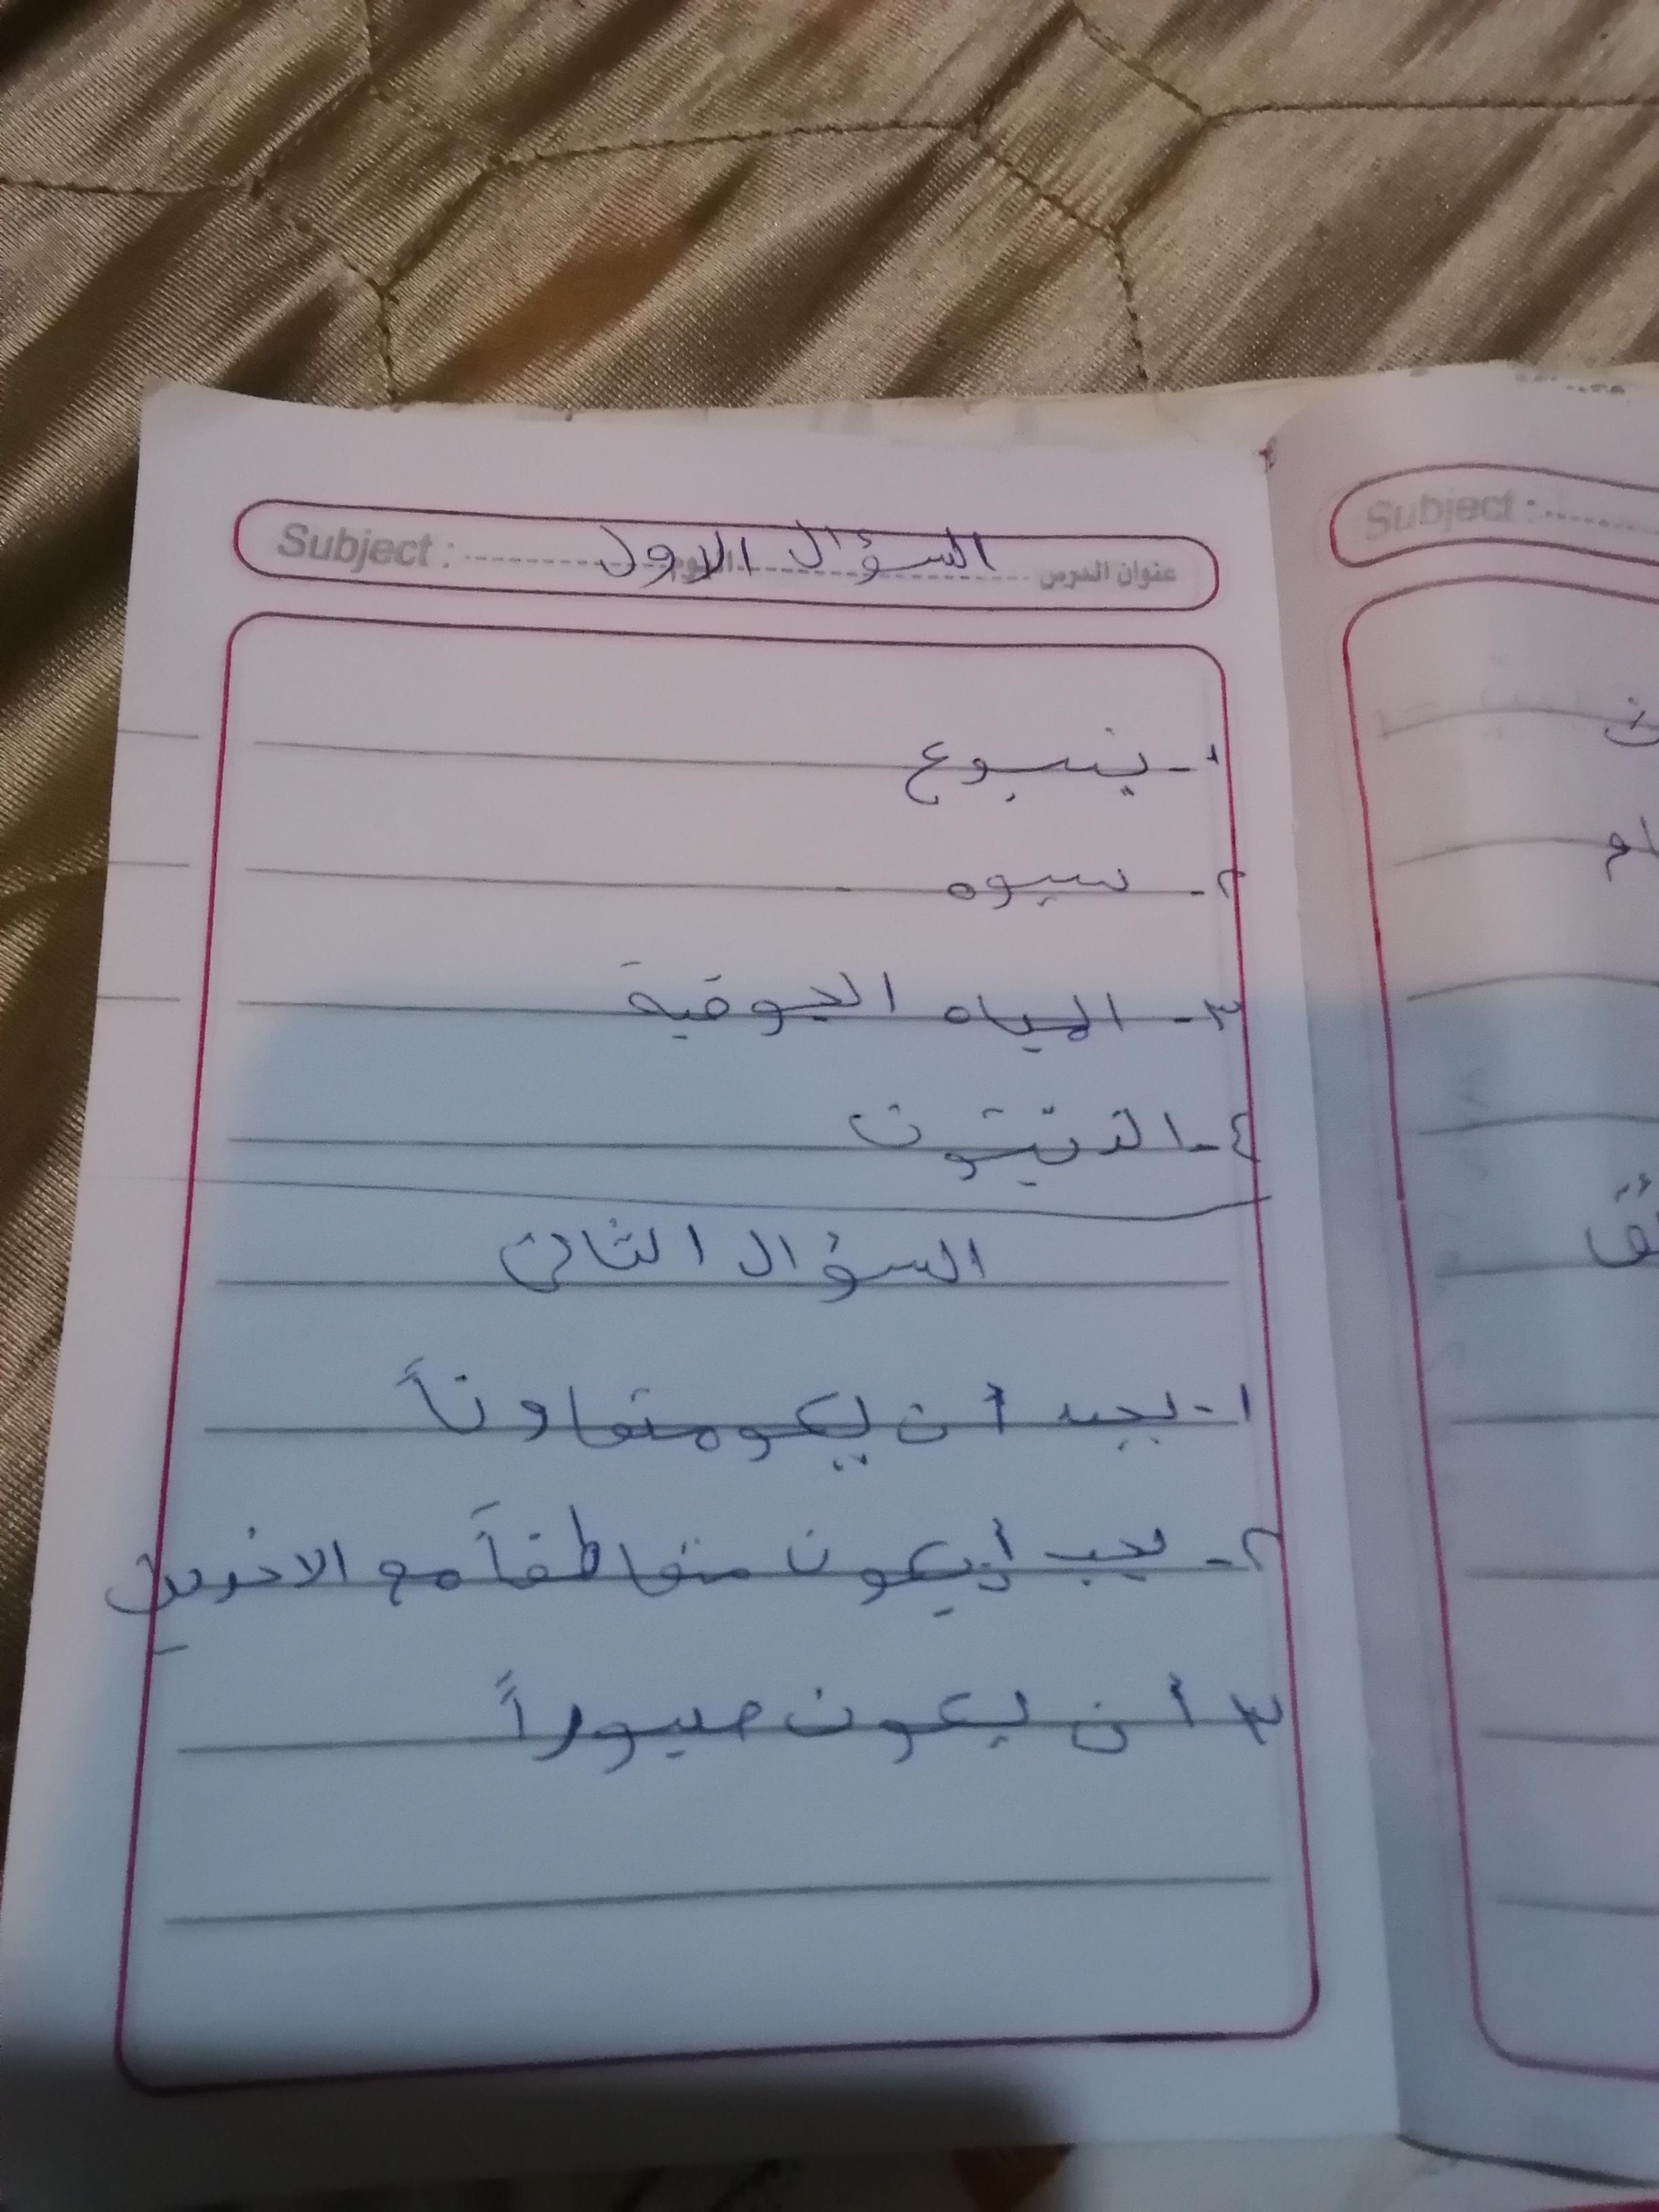 Subject : عنوان الدرس
السؤال الاول
١- ينبوع
٢- سيوه
٣- المياه الجوفية
٤- الزيتون
السؤال الثانى
١- يجب أن يكو متعاوناً
٢- يجب أيكون متعاطفاً مع الاخرين
٣ أن يكون صبوراً
Subject :